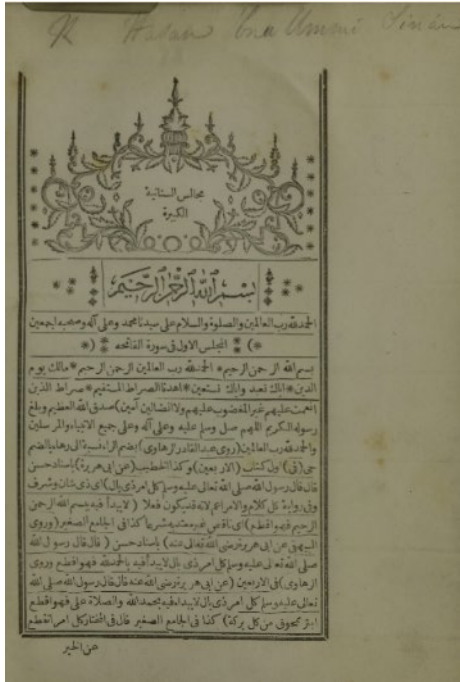 Hasan Bna Ummi Sinán
مجالس السنانية
الكبيرة
بسم الله الرحمن الرحيم
الحمد لله رب العالمين والصلوة والسلام على سيدنا محمد وعلى آله وصحبه اجمعين
*) المجلس الاول فى سورة الفاتحه (*
بسم الله الرحمن الرحيم * الحمد لله رب العالمين الرحمن الرحيم * مالك يوم
الدين * اياك نعبد واياك نستعين * اهدنا الصراط المستقيم * صراط الذين
انعمت عليهم غير المغضوب عليهم ولا الضالين آمين) صدق الله العظيم وبلغ
رسوله الكريم اللهم صل وسلم عليه وعلى آله وعلى جميع الانبياء والمرسلين
والحمد لله رب العالمين (روى عبد القادر الرهاوى) بضم الراء نسبة الى رهاء بالضم
حى (فى) اول كتاب (الاربعين) وكذا الخطيب (عن ابى هريرة) باسناد حسن
قال قال رسول الله صلى الله تعالى عليه وسلم كل امر ذى بال) اى ذى شان وشرف
وفى رواية كل كلام والامر اعم لانه قد يكون فعلا (لا يبدأ فيه ببسم الله الرحمن
الرحيم فهو اقطع) اى ناقص غير معتد به شرعا كذا فى الجامع الصغير (وروى
البيهقى عن ابى هريرة رضى الله تعالى عنه) باسناد حسن (قال قال رسول الله
صلى الله تعالى عليه وسلم كل امر ذى بال لا يبدأ فيه بالحمد لله فهو اقطع وروى
الرهاوى) فى الاربعين (عن ابى هريرة رضى الله عنه قال قال رسول الله صلى الله
تعالى عليه وسلم كل امر ذى بال لا يبداء فيه بحمد الله والصلاة على فهو اقطع
ابتر ممحوق من كل بركة) كذا فى الجامع الصغير قال فى المختار كل امر انقطع
من الخير